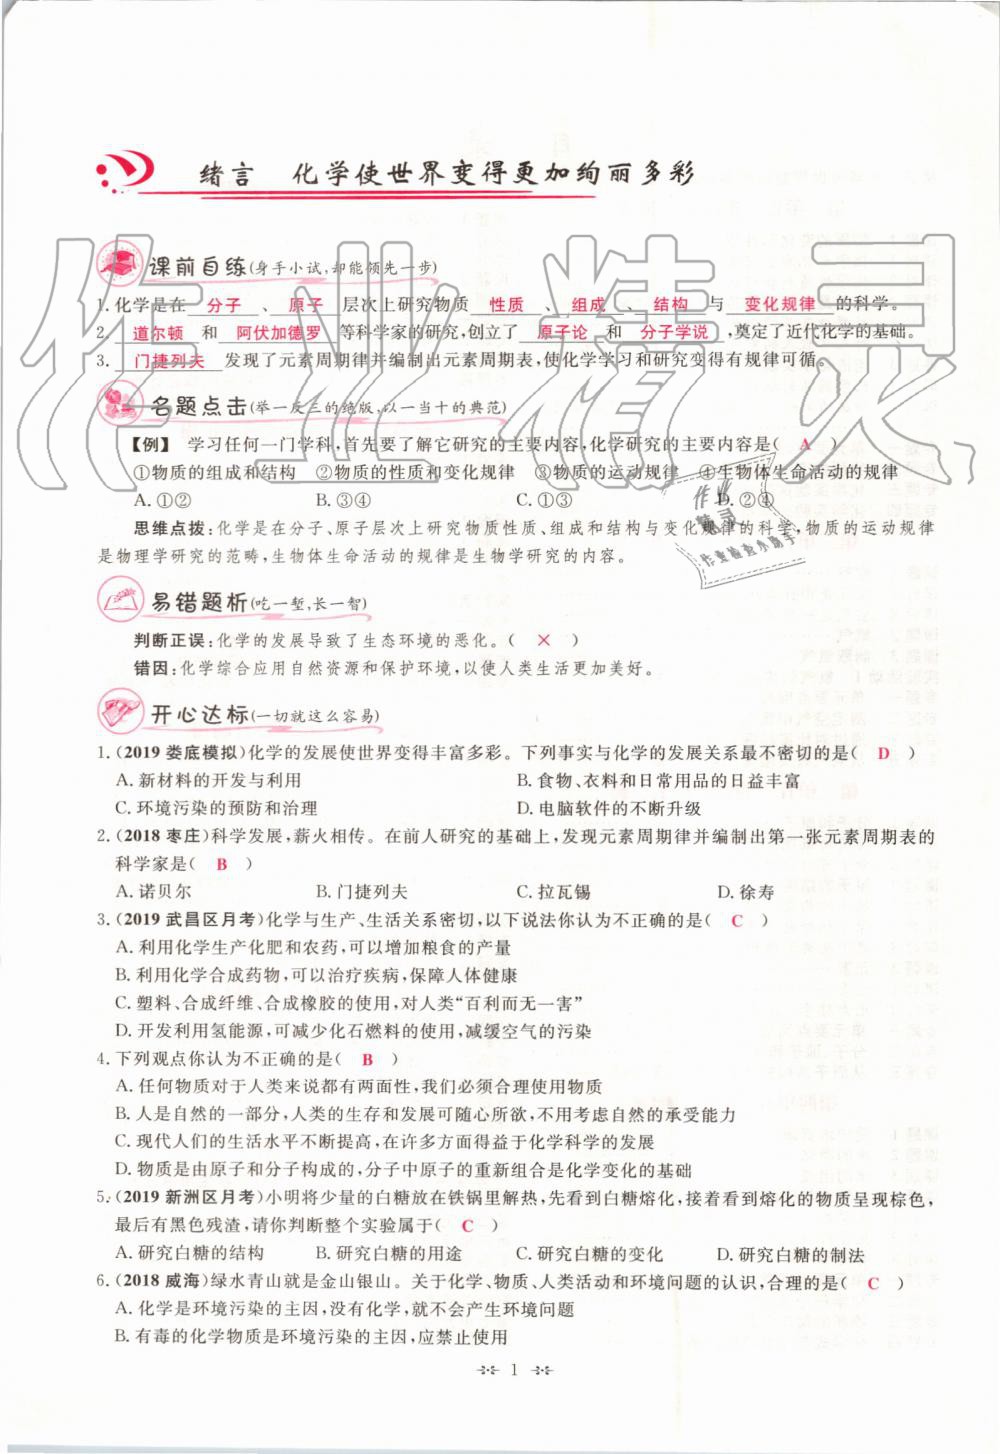 绪言 化学使世界变得更加绚丽多彩
课前自练(身手小试,却能领先一步)
1. 化学是在 分子 、 原子 层次上研究物质 性质 、 组成 、 结构 与 变化规律 的科学。
2. 道尔顿 和 阿伏加德罗 等科学家的研究,创立了 原子论 和 分子学说 ,奠定了近代化学的基础。
3. 门捷列夫 发现了元素周期律并编制出元素周期表,使化学学习和研究变得有规律可循。
名题点击(举一反三的绝版,以一当十的典范)
【例】 学习任何一门学科,首先要了解它研究的主要内容,化学研究的主要内容是( A )
①物质的组成和结构 ②物质的性质和变化规律 ③物质的运动规律 ④生物体生命活动的规律
A. ①② B. ③④ C. ①③ D. ②④
思维点拨:化学是在分子、原子层次上研究物质性质、组成和结构与变化规律的科学,物质的运动规律
是物理学研究的范畴,生物体生命活动的规律是生物学研究的内容。
易错题析(吃一堑,长一智)
判断正误:化学的发展导致了生态环境的恶化。( × )
错因:化学综合应用自然资源和保护环境,以使人类生活更加美好。
开心达标(一切就这么容易)
1. (2019 娄底模拟)化学的发展使世界变得丰富多彩。下列事实与化学的发展关系最不密切的是( D )
A. 新材料的开发与利用 B. 食物、衣料和日常用品的日益丰富
C. 环境污染的预防和治理 D. 电脑软件的不断升级
2. (2018 枣庄)科学发展,薪火相传。在前人研究的基础上,发现元素周期律并编制出第一张元素周期表的
科学家是( B )
A. 诺贝尔 B. 门捷列夫 C. 拉瓦锡 D. 徐寿
3. (2019 武昌区月考)化学与生产、生活关系密切,以下说法你认为不正确的是( C )
A. 利用化学生产化肥和农药,可以增加粮食的产量
B. 利用化学合成药物,可以治疗疾病,保障人体健康
C. 塑料、合成纤维、合成橡胶的使用,对人类“百利而无一害”
D. 开发利用氢能源,可减少化石燃料的使用,减缓空气的污染
4. 下列观点你认为不正确的是( B )
A. 任何物质对于人类来说都有两面性,我们必须合理使用物质
B. 人是自然的一部分,人类的生存和发展可随心所欲,不用考虑自然的承受能力
C. 现代人们的生活水平不断提高,在许多方面得益于化学科学的发展
D. 物质是由原子和分子构成的,分子中原子的重新组合是化学变化的基础
5. (2019 新洲区月考)小明将少量的白糖放在铁锅里解热,先看到白糖熔化,接着看到熔化的物质呈现棕色,
最后有黑色残渣,请你判断整个实验属于( C )
A. 研究白糖的结构 B. 研究白糖的用途 C. 研究白糖的变化 D. 研究白糖的制法
6. (2018 威海)绿水青山就是金山银山。关于化学、物质、人类活动和环境问题的认识,合理的是( C )
A. 化学是环境污染的主因,没有化学,就不会产生环境问题
B. 有毒的化学物质是环境污染的主因,应禁止使用
1
作业精灵
作业精灵
作业检查小助手